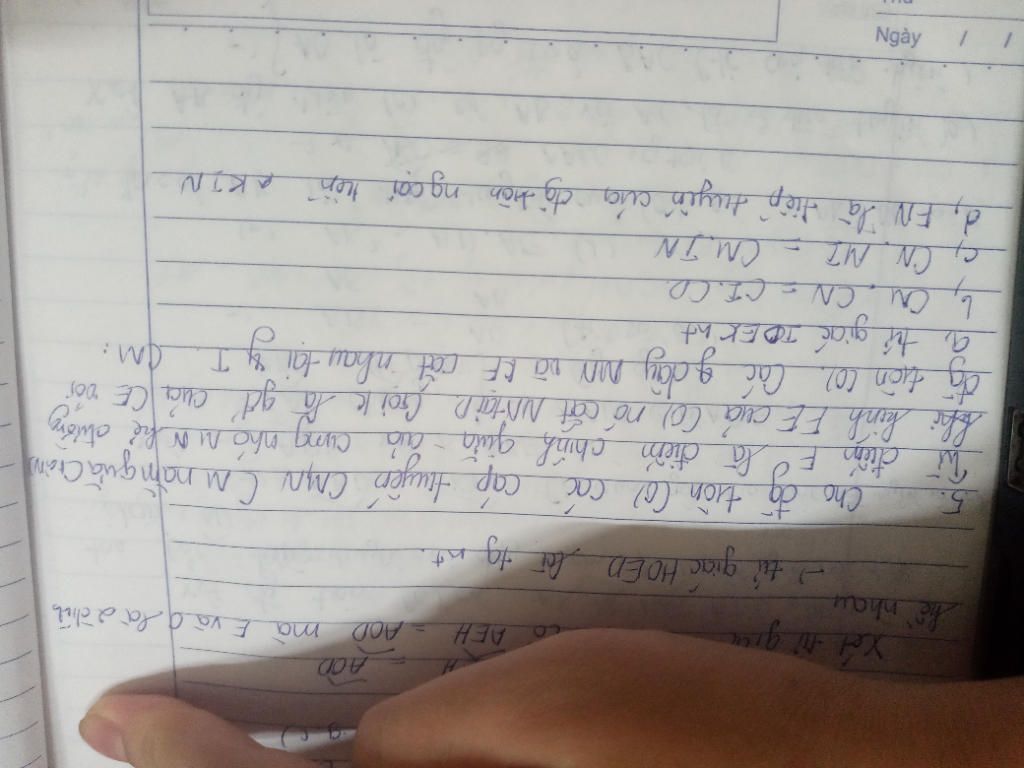 g.c)
= AOD
Xét tứ giác có AEH = AOD mà E và O là 2 đỉnh
kề nhau
→ tứ giác HOED là tg nt.
5. Cho đg tròn (O) các cáp tuyến CMN (M nằm giữa C và N)
Từ điểm E là điểm chính giữa của cung nhỏ MN kẻ đường
kính EF của (O) nó cắt MN tại D. Gọi K là gđ của CE với
đg tròn (O). Các g dây MN và KF cắt nhau tại I. CM:
a. tứ giác IDEK nt
b, CM. CN = CI. CD
c, CN. MI = CM. IN
d, FN là tiếp tuyến của đg tròn ngoại tiếp △ KIN
Ngày / /